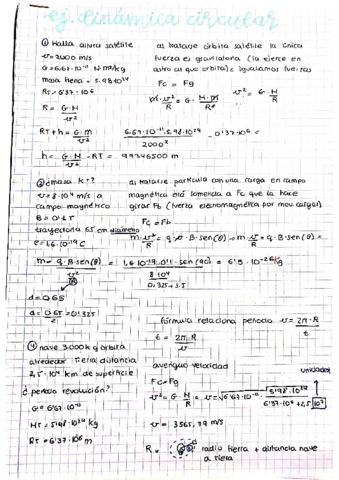 ej. dinámica circular
① Halla altura satélite
v=2000 m/s
G=6,67·10⁻¹¹ N·m/kg
masa tierra = 5.98·10²⁴
RT = 6'37·10⁶
R = G·M / v²
al tratarse órbita satélite la única
fuerza es gravitatoria (la ejerce en
astro al que orbita) = igualamos fuerzas
Fc = Fg
m·v²/R = G·M·m/R² v² = G·M/R
RT+h = G·M/v² 6,67·10⁻¹¹·5,98·10²⁴ / 2000² - 0'37·10⁶ =
h = G·M/v² - RT = 99346500 m
② ¿masa K+?
v=8·10⁴ m/s a
campo magnético
B = 0'1 T
trayectoria 65 cm diámetro
e = 1,6·10⁻¹⁹ C
al tratarse partícula con una carga en campo
magnético está sometida a Fc que la hace
girar Fb (fuerza electromagnética por mov. cargas)
Fc = Fb
m·v²/R = q·v·B·sen(θ) → m·v/R = q·B·sen(θ) =
m = q·B·sen(θ) / v/R = 1,6·10⁻¹⁹·0'1·sen(90) / 8·10⁴ / 0.325 = 6'5·10⁻²⁶ Kg
d = 0,65
d = 0.65/2 = 0'325
fórmula relaciona periodo v = 2π·R / t
t = 2π·R / v
④ nave 3.000 kg orbita
alrededor tierra distancia
2,5·10⁴ km de superficie
¿periodo revolución?
G = 6'67·10⁻¹¹
MT = 5'98·10²⁴ kg
RT = 6'37·10⁶ m
averiguo velocidad
unidades
Fc = Fg
v² = G·M/R = v = √6'67·10⁻¹¹· 5'98·10²⁴ / 6'37·10⁶ + 2,5·10⁷
v = 3565,79 m/s
R = radio tierra + distancia nave
a tierra